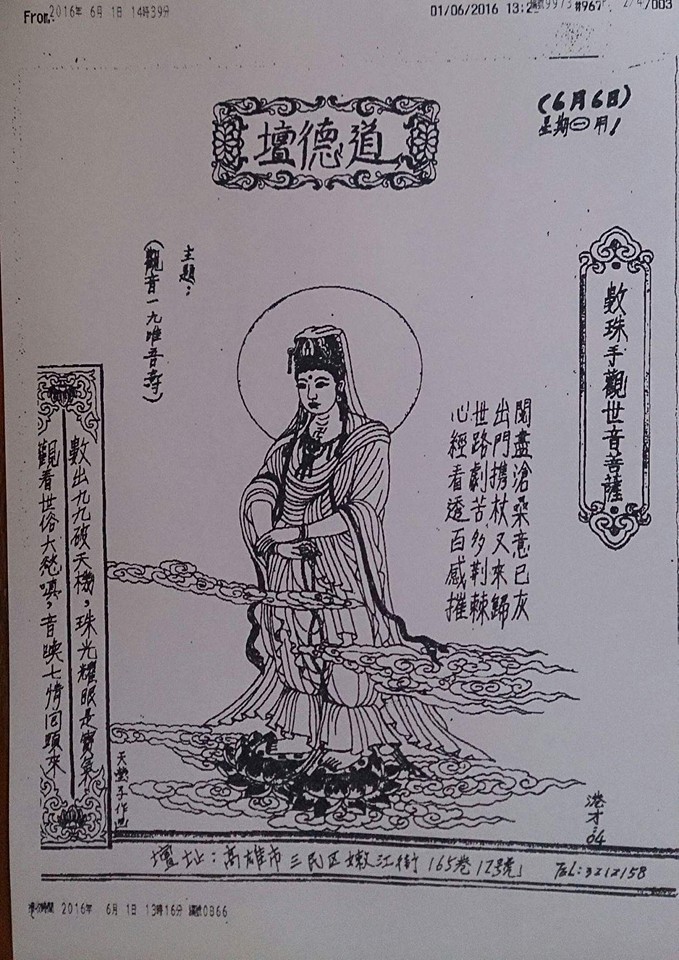 From:2016年 6月 1日 14時39分
01/06/2016 13:2
#967
/003
(6月6日)
星期㊀用!
道德壇
數珠手觀世音菩薩
主題:
(觀音一九唯吾壽)
閱盡滄桑意已灰
出門攜杖又來歸
世路劇苦多荆棘
心經看透百感摧
數出九九破天機,珠光耀眼是寶氣
觀看世俗大慈嗔,音映七情回頭來
天樂子作也
港才
84
壇址:高雄市三民区嫩江街165巷12號
TEL:3212158
2016年 6月 1日 13時16分
0866